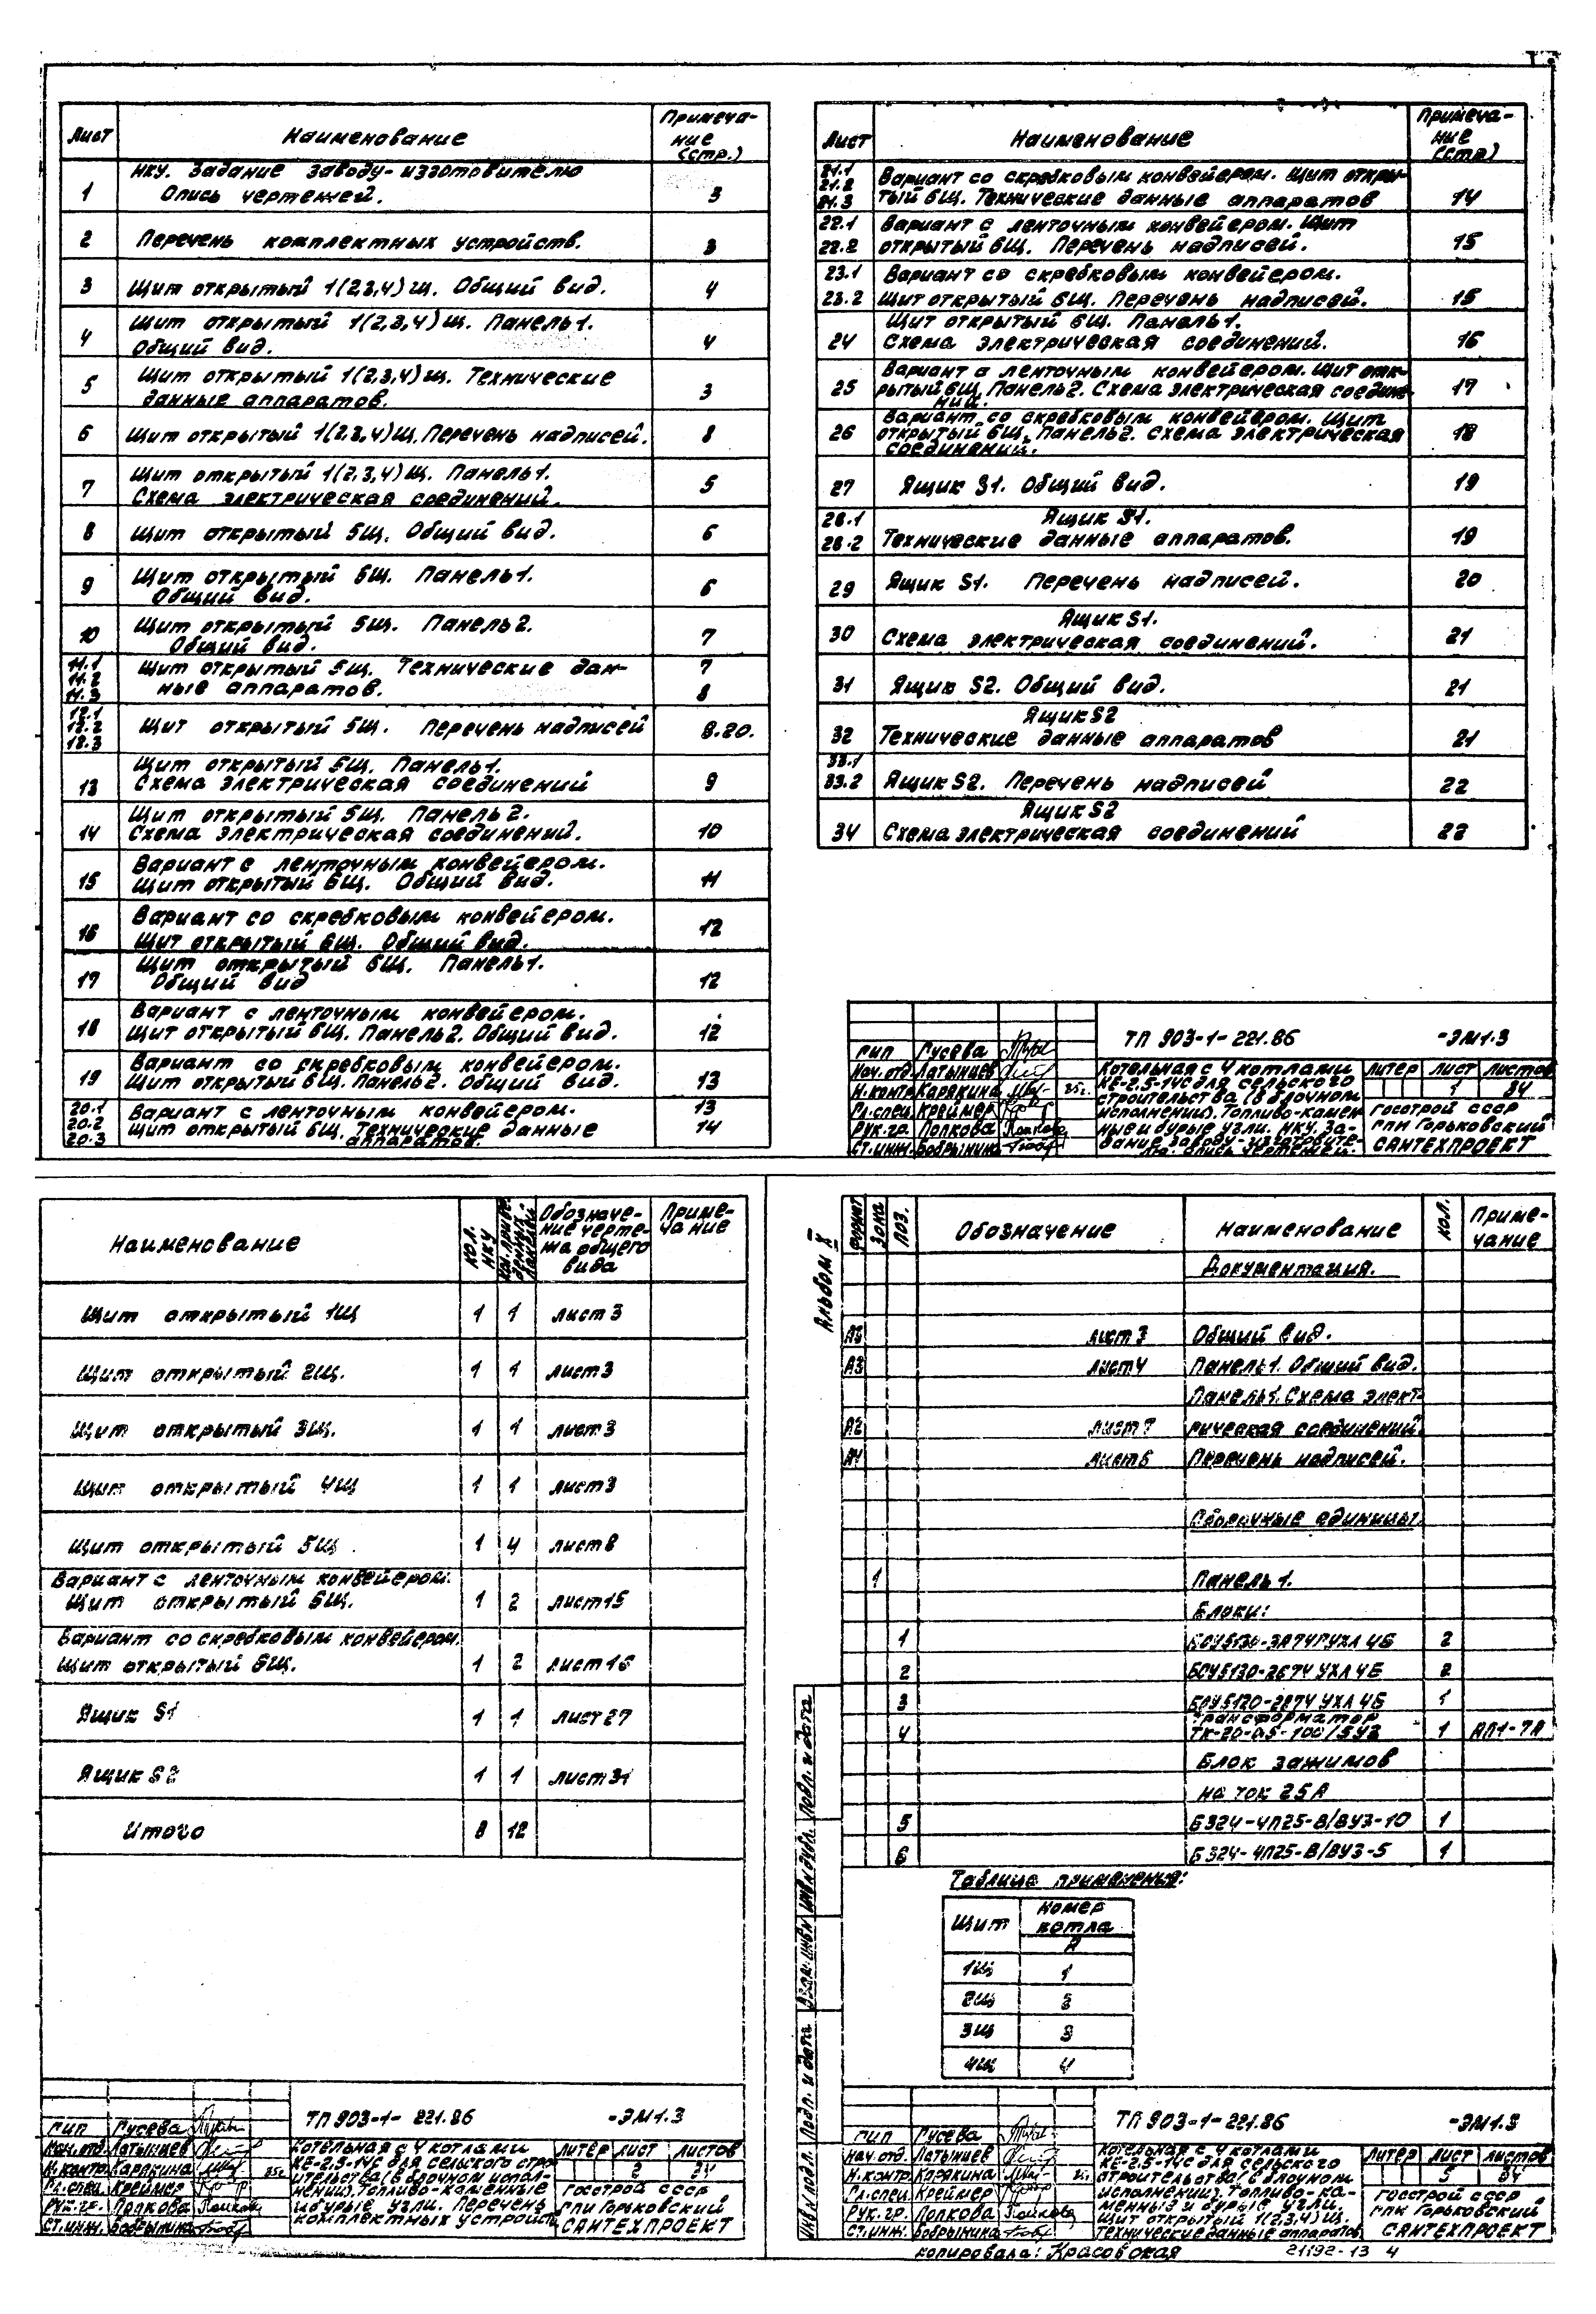 Лист Наименование Примеча-
ние
(стр.)
НКУ. Задание заводу-изготовителю
1 Опись чертежей. 3
2 Перечень комплектных устройств. 3
3 Щит открытый 1(2,3,4)щ. Общий вид. 4
Щит открытый 1(2,3,4)щ. Панель 1.
4 Общий вид. 4
Щит открытый 1(2,3,4)щ. Технические
5 данные аппаратов. 3
6 Щит открытый 1(2,3,4)щ. Перечень надписей. 8
Щит открытый 1(2,3,4)щ. Панель 1.
7 Схема электрическая соединений. 5
8 Щит открытый 5щ. Общий вид. 6
Щит открытый 5щ. Панель 1.
9 Общий вид. 6
Щит открытый 5щ. Панель 2.
10 Общий вид. 7
11.1 Щит открытый 5щ. Технические дан- 7
11.2
11.3 ные аппаратов. 8
12.1
12.2 Щит открытый 5щ. Перечень надписей 8.20.
12.3
Щит открытый 5щ. Панель 1.
13 Схема электрическая соединений 9
Щит открытый 5щ. Панель 2.
14 Схема электрическая соединений. 10
Вариант с ленточным конвейером.
15 Щит открытый 6щ. Общий вид. 11
Вариант со скребковым конвейером.
16 Щит открытый 6щ. Общий вид. 12
Щит открытый 6щ. Панель 1.
17 Общий вид 12
Вариант с ленточным конвейером.
18 Щит открытый 6щ. Панель 2. Общий вид. 12
Вариант со скребковым конвейером.
19 Щит открытый 6щ. Панель 2. Общий вид. 13
20.1 Вариант с ленточным конвейером. 13
20.2 Щит открытый 6щ. Технические данные 14
20.3 аппаратов.
Лист Наименование Примеча-
ние
(стр)
21.1
21.2 Вариант со скребковым конвейером. Щит откры-
21.3 тый 6щ. Технические данные аппаратов 14
22.1 Вариант с ленточным конвейером. Щит
22.2 открытый 6щ. Перечень надписей. 15
23.1 Вариант со скребковым конвейером.
23.2 Щит открытый 6щ. Перечень надписей. 15
Щит открытый 6щ. Панель 1.
24 Схема электрическая соединений. 16
Вариант с ленточным конвейером. Щит отк-
25 рытый 6щ. Панель 2. Схема электрическая соедине- 17
ний.
Вариант со скребковым конвейером. Щит
26 открытый 6щ. Панель 2. Схема электрическая 18
соединений.
27 Ящик S1. Общий вид. 19
28.1 Ящик S1.
28.2 Технические данные аппаратов. 19
29 Ящик S1. Перечень надписей. 20
Ящик S1.
30 Схема электрическая соединений. 21
31 Ящик S2. Общий вид. 21
Ящик S2
32 Технические данные аппаратов 21
33.1
33.2 Ящик S2. Перечень надписей 22
Ящик S2
34 Схема электрическая соединений 22
ТП 903-1-221.86 -ЭМ1.3
ГИП Гусева
Нач.отд. Латынцев
Н.контр. Карякина 85г.
Гл.спец. Креймер
Рук.гр. Полкова
Ст.инж. Бобрынина
Котельная с 4 котлами
КЕ-2,5-14С для сельского
строительства (в блочном
исполнении). Топливо-камен-
ные и бурые угли. НКУ. За-
дание заводу-изготовите-
лю. Опись чертежей.
Литер Лист Листов
1 34
Госстрой СССР
ГПИ Горьковский
САНТЕХПРОЕКТ
Наименование Кол. НКУ Обозначе-
ние черте-
жа общего
вида Приме-
чание
Щит открытый 1щ 1 1 лист 3
Щит открытый 2щ. 1 1 лист 3
Щит открытый 3щ. 1 1 лист 3
Щит открытый 4щ 1 1 лист 3
Щит открытый 5щ. 1 4 лист 8
Вариант с ленточным конвейером.
Щит открытый 6щ. 1 2 лист 15
Вариант со скребковым конвейером.
Щит открытый 6щ. 1 2 лист 16
Ящик S1 1 1 лист 27
Ящик S2 1 1 лист 31
Итого 8 12
ТП 903-1-221.86 -ЭМ1.3
ГИП Гусева
Нач.отд. Латынцев
Н.контр. Карякина 85г.
Гл.спец. Креймер
Рук.гр. Полкова
Ст.инж. Бобрынина
Котельная с 4 котлами
КЕ-2,5-14С для сельского стро-
ительства (в блочном испол-
нении). Топливо-каменные
и бурые угли. Перечень
комплектных устройств
Литер Лист Листов
2 34
Госстрой СССР
ГПИ Горьковский
САНТЕХПРОЕКТ
Альбом X
Формат Зона Поз. Обозначение Наименование Кол. Приме-
чание
Документация.
лист 3 Общий вид.
А3 лист 4 Панель 1. Общий вид.
Панель 1. Схема элект-
А2 лист 7 рическая соединений.
А4 лист 6 Перечень надписей.
Сборочные единицы.
1 Панель 1.
Блоки:
1 2
2 БОУ5130-2674 УХЛ4Б 2
3 БОУ5120-2874 УХЛ4Б 1
Трансформатор
4 ТК-20-0,5-100/5У3 1
Блок зажимов
на ток 25А
5 БЗ24-4П25-В/ВУ3-10 1
6 БЗ24-4П25-В/ВУ3-5 1
Таблица применения:
Щит Номер
котла
А
1щ 1
2щ 2
3щ 3
4щ 4
Инв.N подл. Подп. и дата Взам.инв.N Инв.N дубл. Подп. и дата
ТП 903-1-221.86 -ЭМ1.3
ГИП Гусева
Нач.отд. Латынцев
Н.контр. Карякина
Гл.спец. Креймер
Рук.гр. Полкова
Ст.инж. Бобрынина
Котельная с 4 котлами
КЕ-2,5-14С для сельского
строительства (в блочном
исполнении). Топливо-ка-
менные и бурые угли.
Щит открытый 1(2,3,4)щ.
Технические данные аппаратов
Литер Лист Листов
5 34
Госстрой СССР
ГПИ Горьковский
САНТЕХПРОЕКТ
Копировала: Красовская 21192-13 4